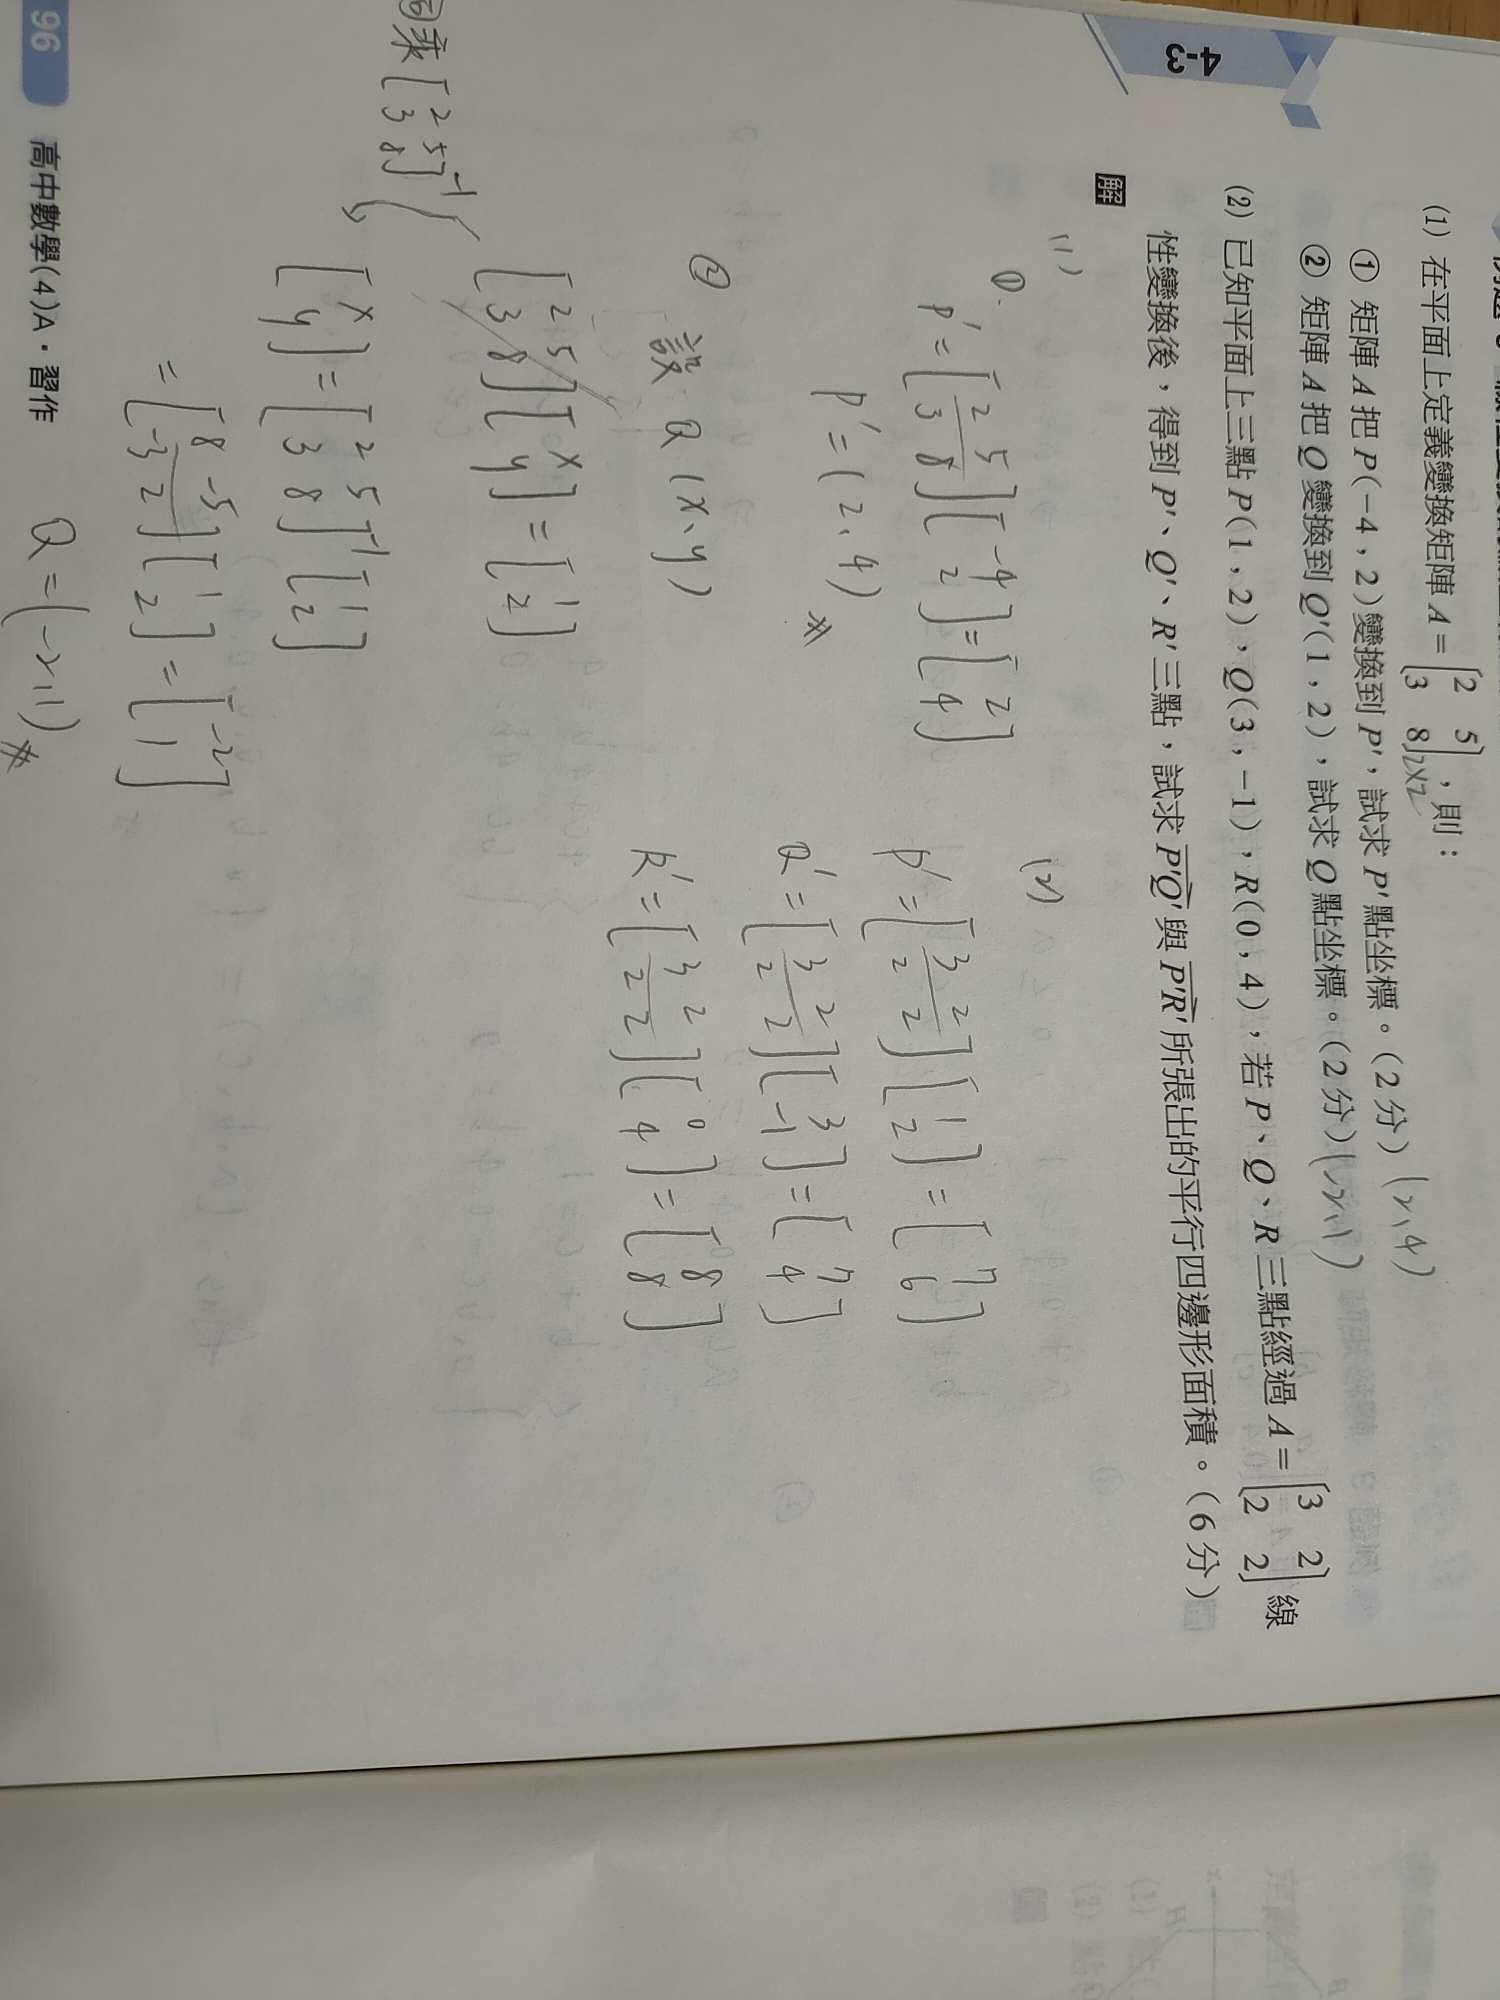 4-3
(1) 在平面上定義變換矩陣 A = [2 5
3 8]2×2 ,則:
① 矩陣 A 把 P(-4,2)變換到 P',試求 P'點坐標。(2分) (2、4)
② 矩陣 A 把 Q 變換到 Q'(1,2),試求 Q 點坐標。(2分) (-2、1)
(2) 已知平面上三點 P(1,2),Q(3,-1),R(0,4),若 P、Q、R 三點經過 A = [3 2
2 2] 線
性變換後,得到 P'、Q'、R'三點,試求 P'Q' 與 P'R' 所張出的平行四邊形面積。(6分)
解
(1)
①.
P' = [2 5
3 8][-4
2] = [2
4]
P' = (2、4)
② 設 Q (x、y)
[2 5
3 8][x
y] = [1
2]
同乘 [2 5
3 8]-1
[x
y] = [2 5
3 8]-1[1
2]
= [8 -5
-3 2][1
2] = [-2
1]
Q = (-2,1)
(2)
P' = [3 2
2 2][1
2] = [7
6]
Q' = [3 2
2 2][3
-1] = [7
4]
R' = [3 2
2 2][0
4] = [8
8]
96 高中數學(4)A・習作